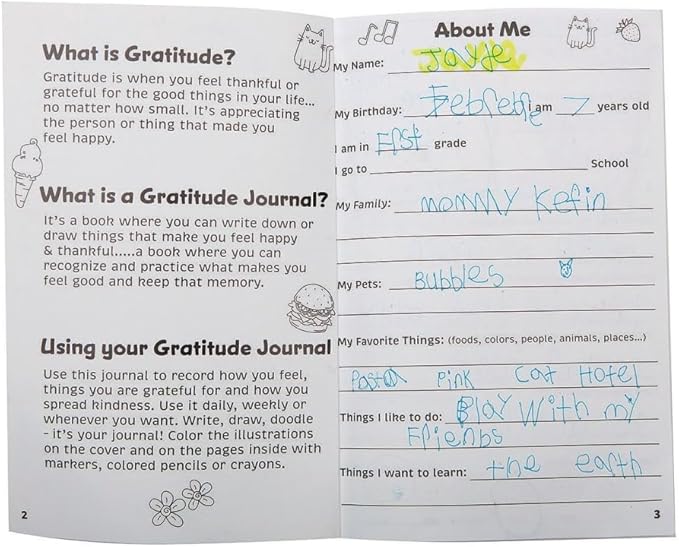 What is Gratitude?
Gratitude is when you feel thankful or
grateful for the good things in your life...
no matter how small. It's appreciating
the person or thing that made you
feel happy.
What is a Gratitude Journal?
It's a book where you can write down or
draw things that make you feel happy
& thankful.....a book where you can
recognize and practice what makes you
feel good and keep that memory.
Using your Gratitude Journal
Use this journal to record how you feel,
things you are grateful for and how you
spread kindness. Use it daily, weekly or
whenever you want. Write, draw, doodle
- it's your journal! Color the illustrations
on the cover and on the pages inside with
markers, colored pencils or crayons.
2
About Me
My Name:
My Birthday: I am 7 years old
I am in grade
I go to School
My Family: mommy Kefin
My Pets: Bubbles
My Favorite Things: (foods, colors, people, animals, places...)
Pasta Pink Cat Hotel
Things I like to do: Play With my
Friends
Things I want to learn: the earth
3